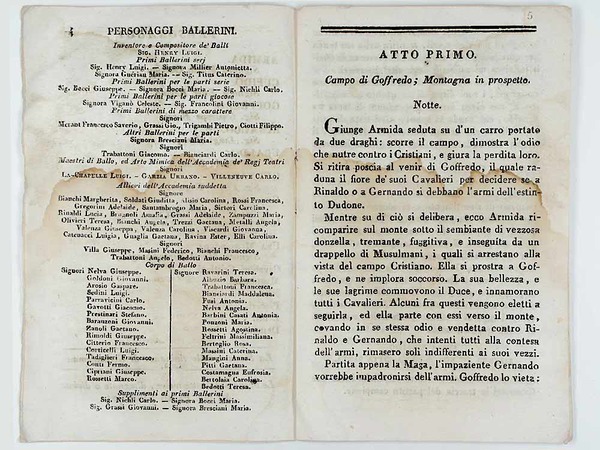 4
PERSONAGGI BALLERINI.
Inventore e Compositore de' Balli
SIG. HENRY LUIGI.
Primi Ballerini serj
Sig. Henry Luigi. — Signora Millier Antonietta.
Signora Guérian Maria. — Sig. Titus Caterino.
Primi Ballerini per le parti serie
Sig. Bocci Giuseppe. — Signora Bocci Maria. — Sig. Nichli Carlo.
Primi Ballerini per le parti giocose
Signora Viganò Celeste. — Sig. Francolini Giovanni.
Primi Ballerini di mezzo carattere
Signori
Merant Francesco Saverio, Grassi Gio., Trigambi Pietro, Ciotti Filippo.
Altri Ballerini per le parti
Signora Bresciani Maria.
Signori
Trabattoni Giacomo. — Bianciardi Carlo.
Maestri di Ballo, ed Arte Mimica dell'Accademia de' Regj Teatri
Signori
LA-CHAPELLE LUIGI. — GARZIA URBANO. — VILLENEUVE CARLO.
Allievi dell'Accademia suddetta
Signore
Bianchi Margherita, Soldati Giuditta, Alisio Carolina, Rossi Francesca,
Gregorini Adelaide, Santambrogio Maria, Sirtori Carolina,
Rinaldi Lucia, Brugnoli Amalia, Grassi Adelaide, Zampuzzi Maria,
Olivieri Teresa, Bianchi Angela, Trezzi Gaetana, Metalli Angela,
Valenza Giuseppa, Valenza Carolina, Viscardi Giovanna,
Carcano Luigia, Guaglia Gaetana, Ravina Ester, Elli Carolina.
Signori
Villa Giuseppe, Massini Federico, Bianchi Francesco,
Trabattoni Angelo, Bedotti Antonio.
Corpo di Ballo
Signori Nelva Giuseppe.
Goldoni Giovanni.
Arosio Gaspare.
Sedini Luigi.
Parravicini Carlo.
Gavotti Giacomo.
Prestinari Stefano.
Baranzoni Giovanni.
Zanoli Gaetano.
Rimoldi Giuseppe.
Citterio Francesco.
Corticelli Luigi.
Tadiglieri Francesco.
Conti Fermo.
Cipriani Giuseppe.
Rossetti Marco.
Signore Ravarini Teresa.
Albuzio Barbara.
Trabattoni Francesca.
Bianciardi Maddalena.
Fusi Antonia.
Nelva Angela.
Barbini Casati Antonia.
Ponzoni Maria.
Rossetti Agostina.
Feltrini Massimiliana.
Bertoglio Rosa.
Massini Caterina.
Mangini Anna.
Pitti Gaetana.
Costamagna Eufrosia.
Bertolaia Carolina.
Bedotti Teresa.
Supplimenti ai primi Ballerini
Sig. Nichli Carlo. — Signora Bocci Maria.
Sig. Grassi Giovanni. — Signora Bresciani Maria.
5
ATTO PRIMO.
Campo di Goffredo; Montagna in prospetto.
Notte.
Giunge Armida seduta su d'un carro portato
da due draghi: scorre il campo, dimostra l'odio
che nutre contro i Cristiani, e giura la perdita loro.
Si ritira poscia al venir di Goffredo, il quale ra-
duna il fiore de' suoi Cavalieri per decidere se a
Rinaldo o a Gernando si debbano l'armi dell'estin-
to Dudone.
Mentre su di ciò si delibera, ecco Armida ri-
comparire sul monte sotto il sembiante di vezzosa
donzella, tremante, fuggitiva, e inseguita da un
drappello di Musulmani, i quali si arrestano alla
vista del campo Cristiano. Ella si prostra a Gof-
fredo, e ne implora soccorso. La sua bellezza, e
le sue lagrime commovono il Duce, e innamorano
tutti i Cavalieri. Alcuni fra questi vengono eletti a
seguirla, ed ella parte con essi verso il monte,
covando in se stessa odio e vendetta contro Ri-
naldo e Gernando, che intenti tutti alla contesa
dell'armi, rimasero soli indifferenti ai suoi vezzi.
Partita appena la Maga, l'impaziente Gernando
vorrebbe impadronirsi dell'armi. Goffredo lo vieta: